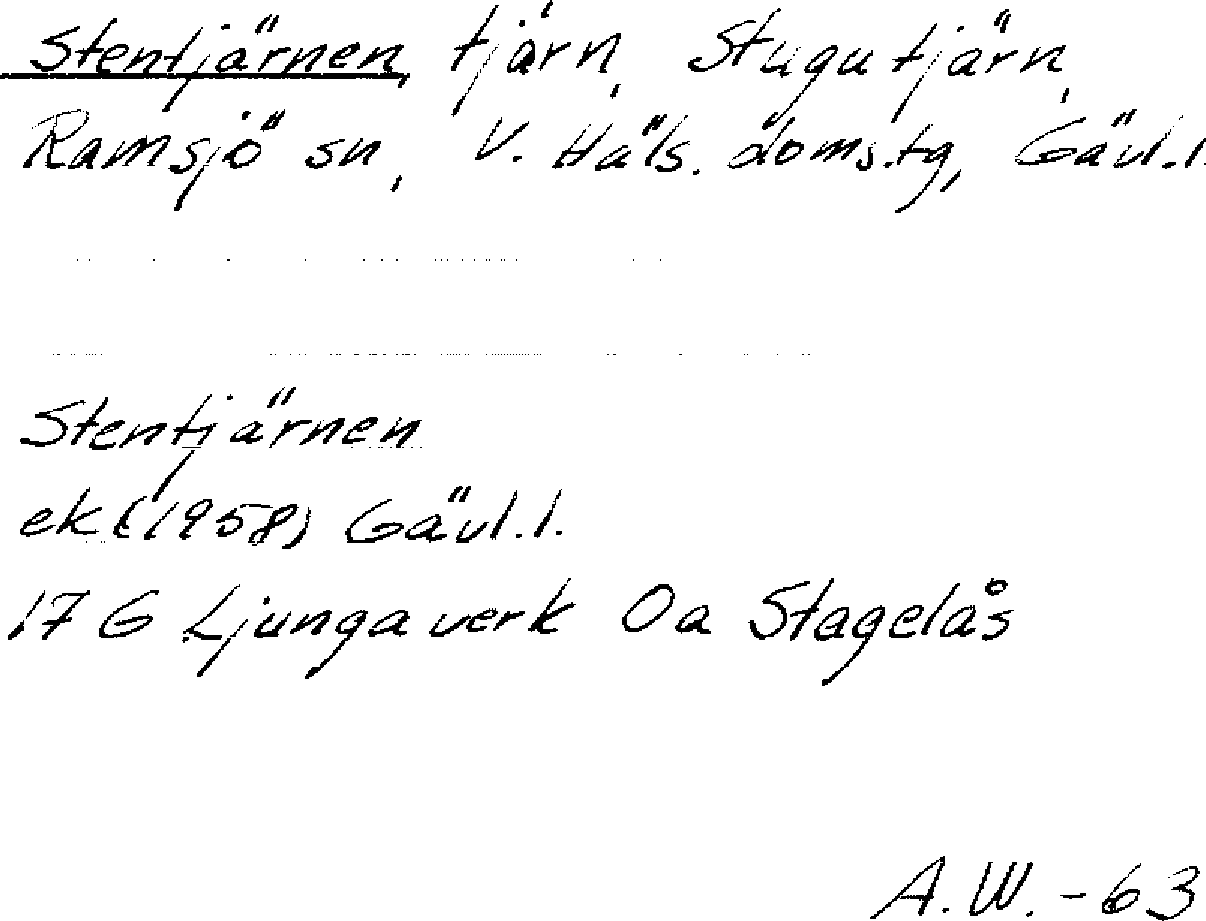 Stentjärnen, tjärn, Stugutjärn,
Ramsjö sn, V. Häls. doms.tg, Gävl.l.
Stentjärnen
ek (1958) Gävl.l.
17 G Ljungaverk Oa Stagelås
A.W. -63